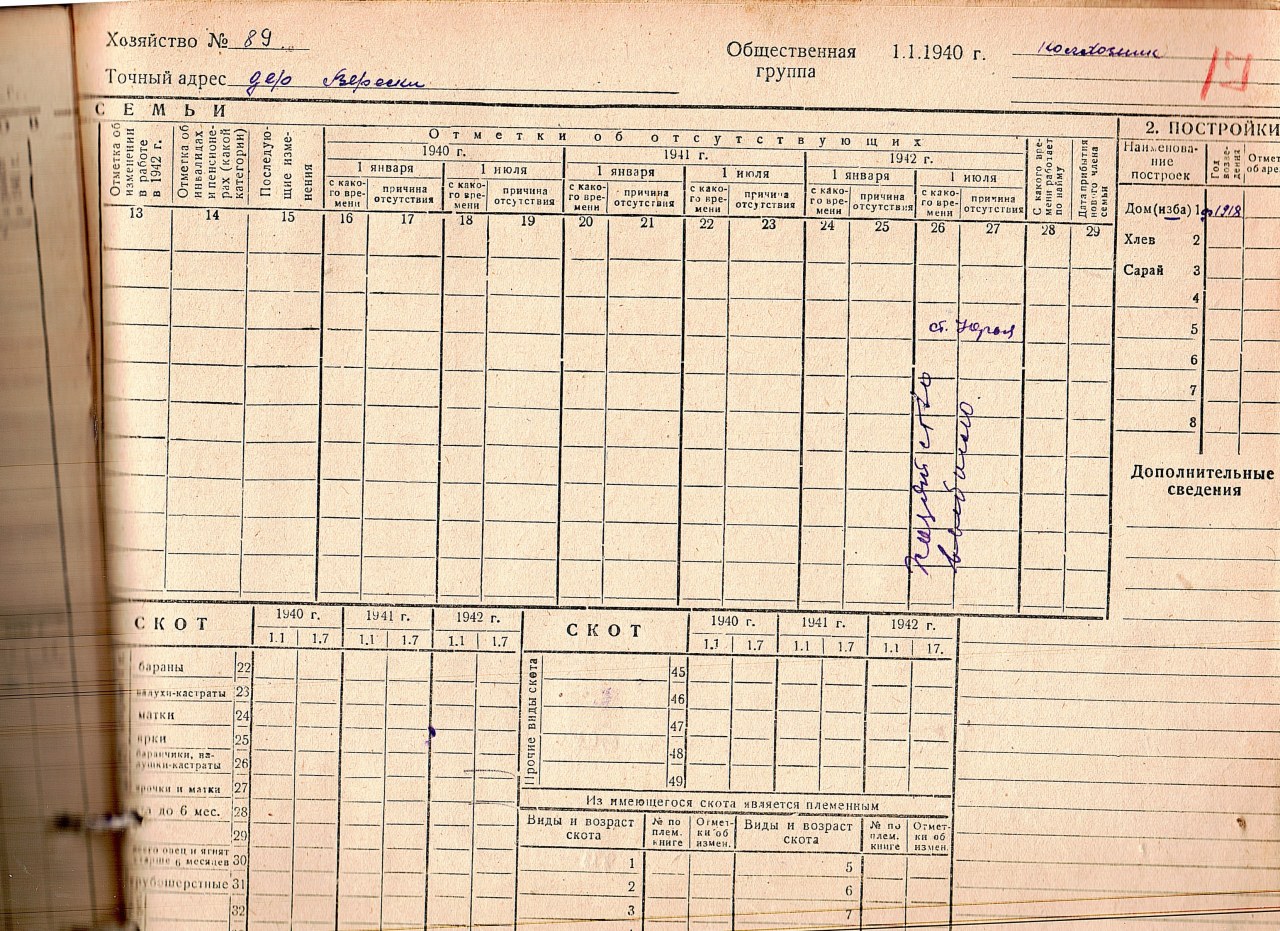 Хозяйство № 89
Точный адрес дер Верески
Общественная группа 1.1.1940 г. колхозник
СЕМЬИ
Отметка об изменении в работе в 1942 г.
Отметка об инвалидах и пенсионерах (какой категории)
Последующие изменения
Отметки об отсутствующих
1940 г. 1941 г. 1942 г.
1 января 1 июля 1 января 1 июля 1 января 1 июля
с какого времени причина отсутствия с какого времени причина отсутствия с какого времени причина отсутствия с какого времени причина отсутствия с какого времени причина отсутствия с какого времени причина отсутствия
С какого времени работает по найму
Дата прибытия нового члена семьи
13 14 15 16 17 18 19 20 21 22 23 24 25 26 27 28 29
ст. Юрья
Хозяйство
выбыло
2. ПОСТРОЙКИ
Наименование построек
Год возведения
Дом (изба) 1 1918
Хлев 2
Сарай 3
4
5
6
7
8
Дополнительные
сведения
СКОТ 1940 г. 1941 г. 1942 г.
1.1 1.7 1.1 1.7 1.1 1.7
бараны 22
валухи-кастраты 23
матки 24
ярки 25
баранчики, валушки-кастраты 26
ярочки и матки 27
до 6 мес. 28
29
всего овец и ягнят старше 6 месяцев 30
грубошерстные 31
32
СКОТ 1940 г. 1941 г. 1942 г.
1.1 1.7 1.1 1.7 1.1 17.
Прочие виды скота
45
46
47
48
49
Из имеющегося скота является племенным
Виды и возраст скота № по плем. книге Отметки об измен. Виды и возраст скота № по плем. книге Отметки об измен.
1 5
2 6
3 7